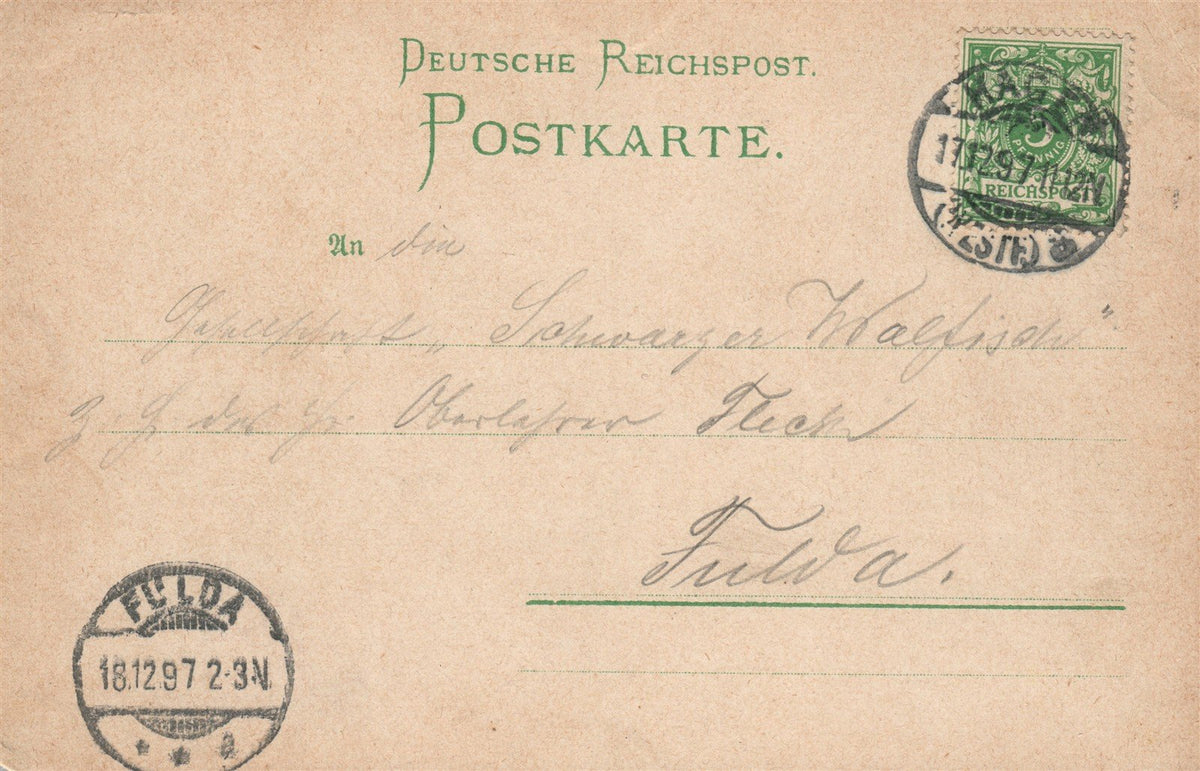 DEUTSCHE REICHSPOST.
POSTKARTE.
HAGEN
5
PFENNIG
17.12.97 11-12N
REICHSPOST
(WESTF.)
An die
Gesellschaft „Schwarzer Walfisch"
z. H. des Hr Oberlehrer Fleck
Fulda.
FULDA
18.12.97 2-3N.
* * a